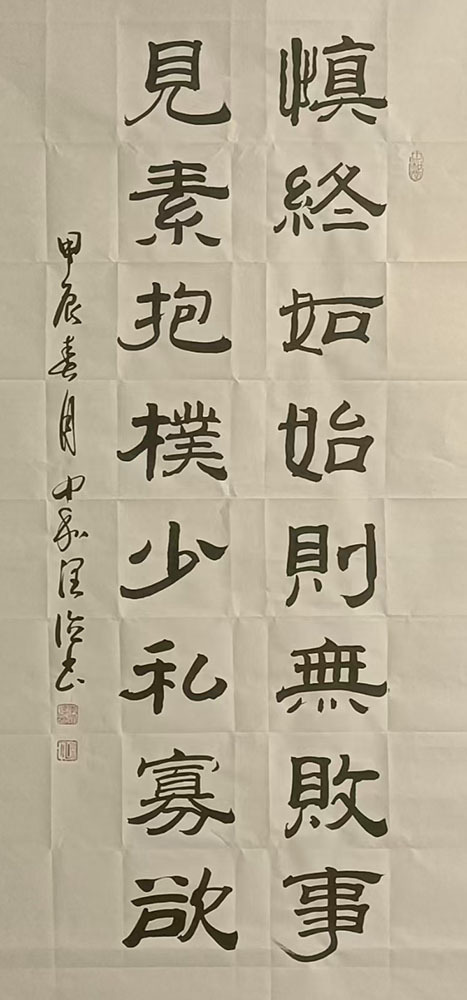 慎終如始則無敗事
見素抱樸少私寡欲
甲辰春月